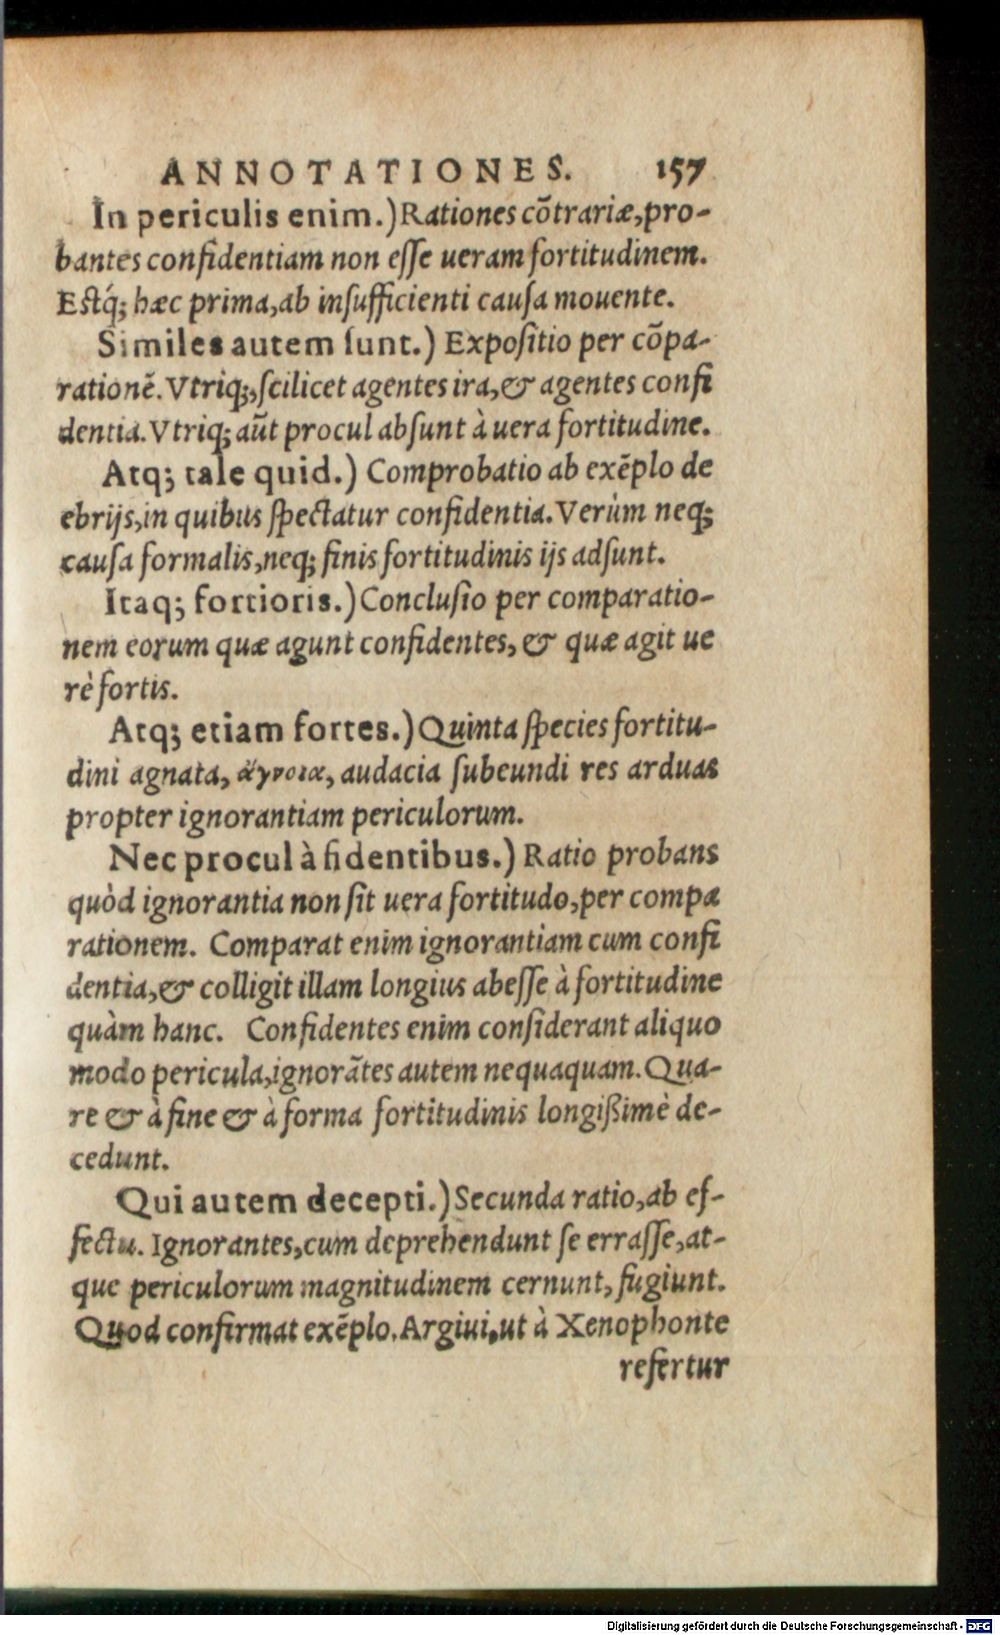 ANNOTATIONES. 157
In periculis enim.) Rationes cõtrariæ, pro-
bantes confidentiam non eſſe ueram fortitudinem.
Eſtq́; hæc prima, ab inſufficienti cauſa mouente.
Similes autem ſunt.) Expoſitio per cõpa-
rationẽ. Vtriq;, ſcilicet agentes ira, & agentes confi
dentia. Vtriq; aũt procul abſunt à uera fortitudine.
Atq; tale quid.) Comprobatio ab exẽplo de
ebrijs, in quibus ſpectatur confidentia. Verùm neq;
cauſa formalis, neq; finis fortitudinis ijs adſunt.
Itaq; fortioris.) Concluſio per comparatio-
nem eorum quæ agunt confidentes, & quæ agit ue
rè fortis.
Atq; etiam fortes.) Quinta ſpecies fortitu-
dini agnata, ἄγνοια, audacia ſubeundi res arduas
propter ignorantiam periculorum.
Nec procul à fidentibus.) Ratio probans
quòd ignorantia non ſit uera fortitudo, per compa
rationem. Comparat enim ignorantiam cum confi
dentia, & colligit illam longius abeſſe à fortitudine
quàm hanc. Confidentes enim conſiderant aliquo
modo pericula, ignorãtes autem nequaquam. Qua-
re & à fine & à forma fortitudinis longißimè de-
cedunt.
Qui autem decepti.) Secunda ratio, ab ef-
fectu. Ignorantes, cum deprehendunt ſe erraſſe, at-
que periculorum magnitudinem cernunt, fugiunt.
Quod confirmat exẽplo. Argiui, ut à Xenophonte
refertur
Digitalisierung gefördert durch die Deutsche Forschungsgemeinschaft - DFG